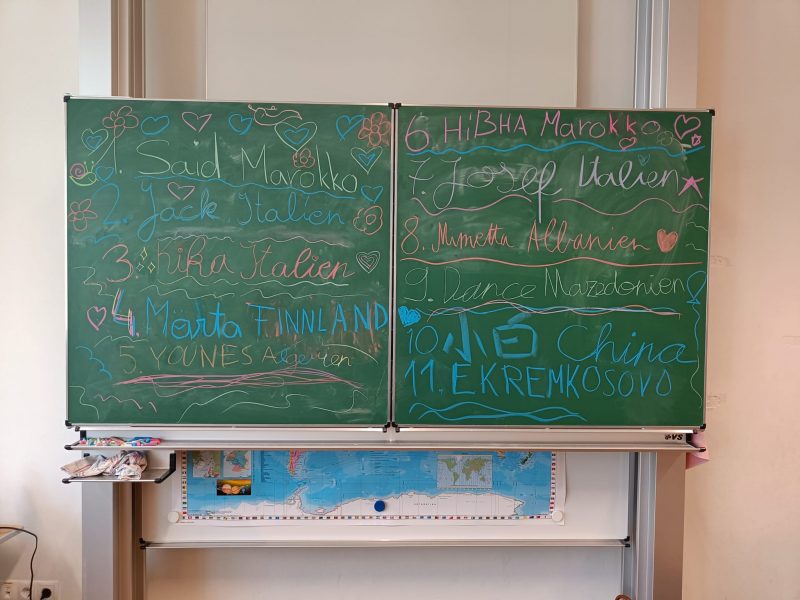 1. Said Marokko
2. Jack Italien
3. kika Italien
4. Marta FINNLAND
5. YOUNES Algerien
6 HiBHA Marokko
7. Josef Italien
8. Mimetta Albanien
9. Dance Mazedonien
10 小白 China
11. EKREM KOSOVO
VS